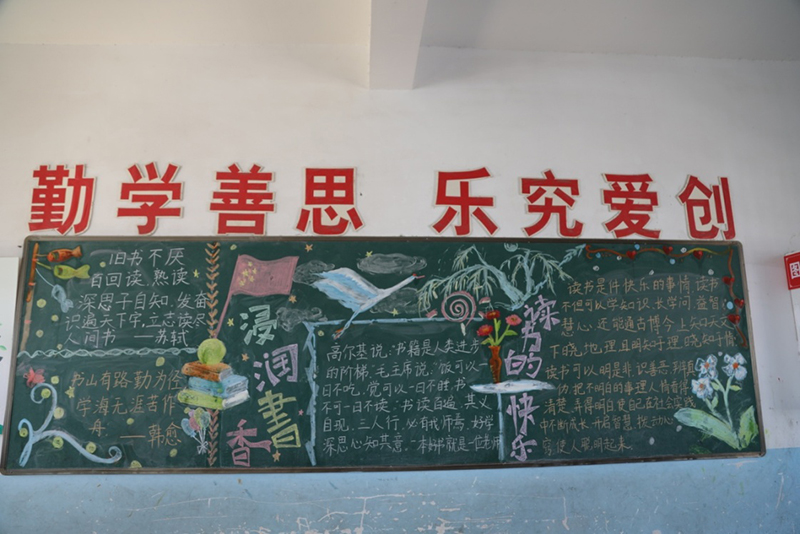 勤学善思 乐究爱创
旧书不厌
百回读,熟读
深思子自知,发奋
识遍天下字,立志读尽
人间书 —苏轼
书山有路勤为径
学海无涯苦作
舟 —韩愈
浸润書香
高尔基说:书籍是人类进步
的阶梯,毛主席说:饭可以
一日不吃,觉可以一日不睡,书
不可一日不读,书读百遍,其义
自见,三人行,必有我师焉,好学
深思心知其意,一本好书就是一个老师
读书的快乐
读书是件快乐的事情,读书
不但可以学知识,长学问,益智
慧心,还能通古博今,上知天文
下晓地理,且明于理,晓知于情
读书可以明是非,识善恶
把不明白的事理人情看得
清楚,弄得明白,使自己在社会实践
中不断成长,开启智慧
使人聪明起来.
图